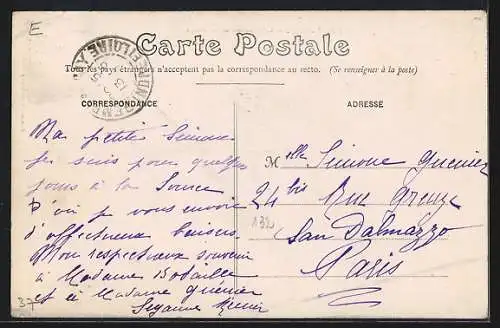 E
Carte Postale
Tous les pays étrangers n'acceptent pas la correspondance au recto. (Se renseigner à la poste)
CORRESPONDANCE
ADRESSE
Ma petite Simone
je suis pour quelques
jours à la Source
D'où je vous envoie
d'affectueux baisers
Mon respectueux souvenir
à Madame Bataille
et à Madame Guénier
Suzanne
Melle Simone Guénier
24 bis Rue Greuze
San Dalmazzo
Paris
132
37